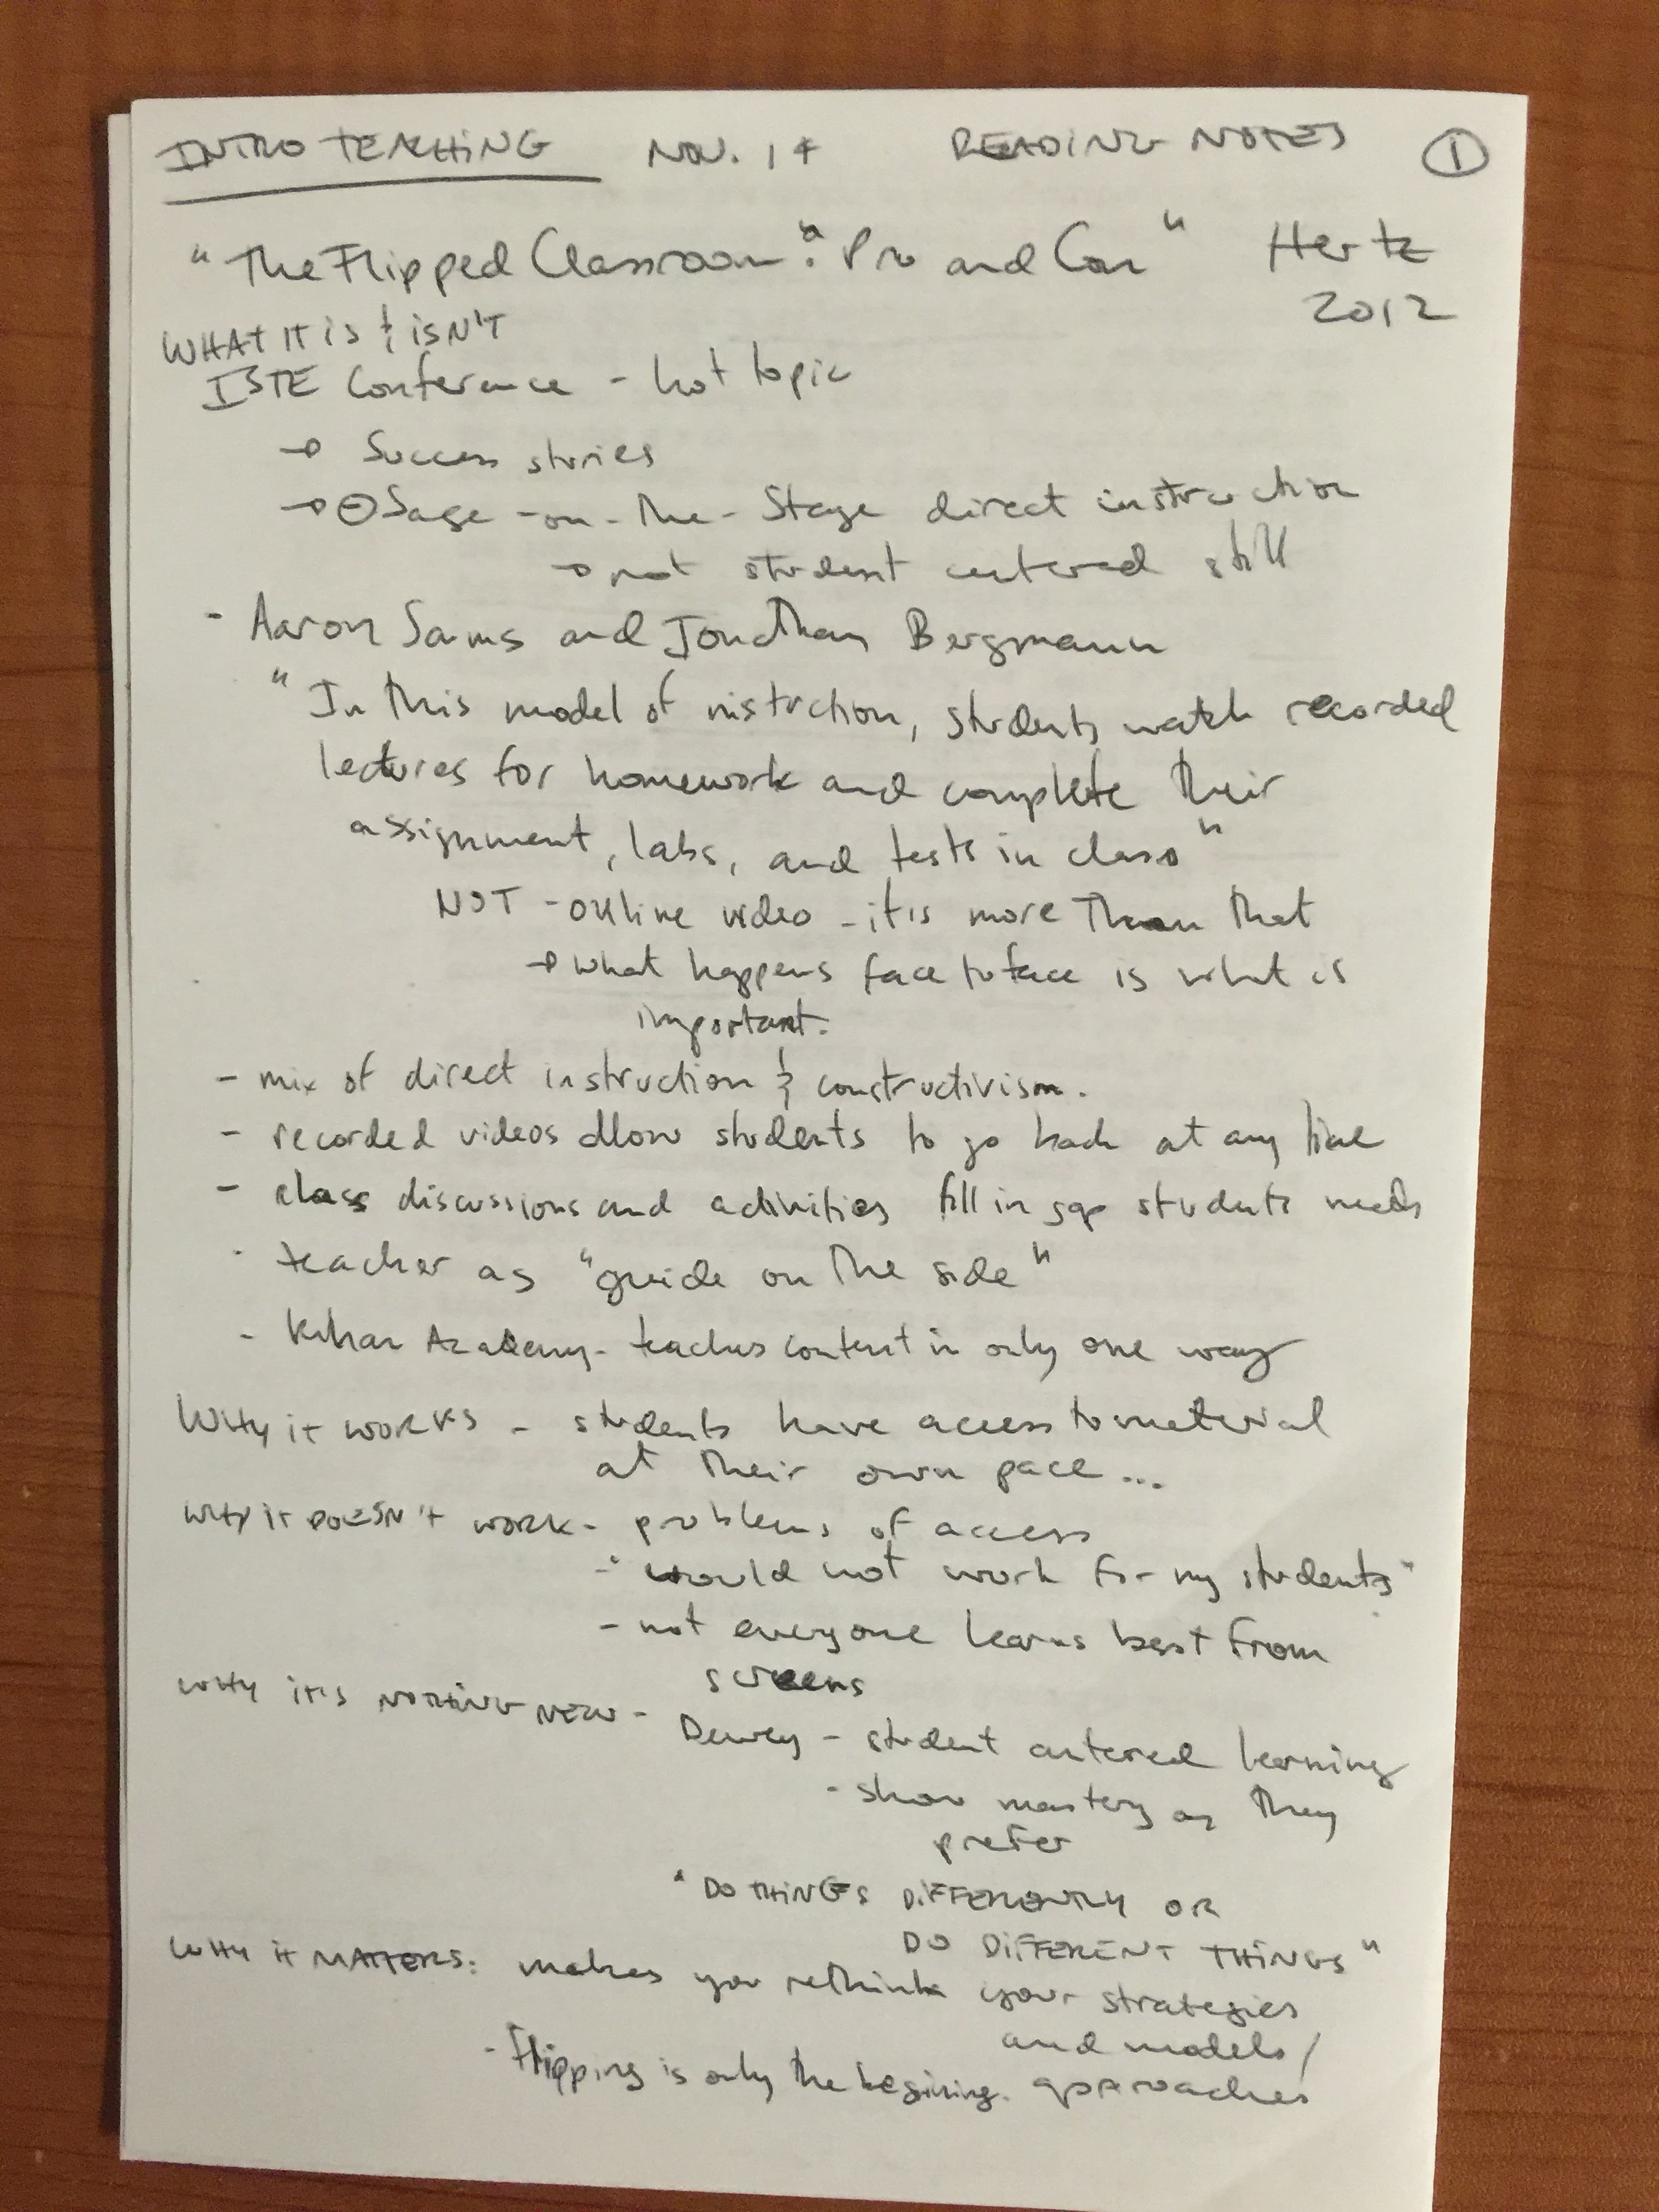 INTRO TEACHING NOV. 14 READING NOTES 1
"The Flipped Classroom": Pro and Con" Hertz
2012
WHAT IT IS & ISN'T
ISTE Conference - hot topic
→ Success stories
→ ⊖ Sage-on-the-Stage direct instruction
→ not student centered still
- Aaron Sams and Jonathan Bergmann
"In this model of instruction, students watch recorded
lectures for homework and complete their
assignment, labs, and tests in class"
NOT - online video - it is more than that
→ what happens face to face is what is
important.
- mix of direct instruction & constructivism.
- recorded videos allow students to go back at any time
- class discussions and activities fill in gap students needs
- teacher as "guide on the side"
- Kahn Academy - teaches content in only one way
WHY IT WORKS - students have access to material
at their own pace...
WHY IT DOESN'T WORK - problems of access
- "would not work for my students"
- not everyone learns best from
screens
WHY IT'S NOTHING NEW -
Dewey - student centered learning
- show mastery as they
prefer
"DO THINGS DIFFERENTLY OR
DO DIFFERENT THINGS"
WHY IT MATTERS: makes you rethink your strategies
and models/
approaches
- Flipping is only the begining.